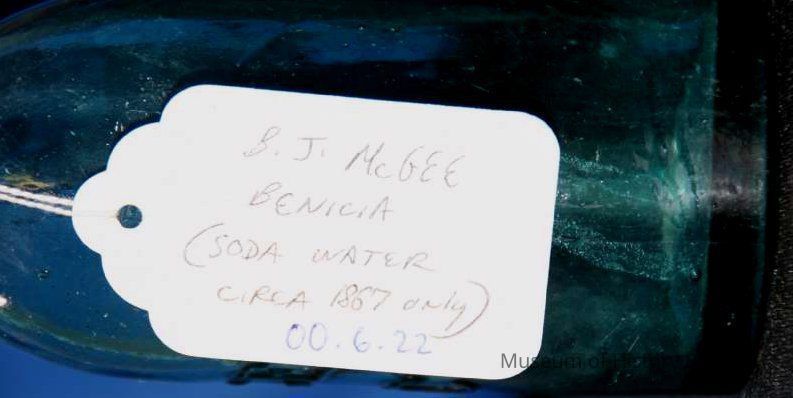 B. J. McGEE
BENICIA
(SODA WATER
CIRCA 1867 only)
00.6.22
Museum of